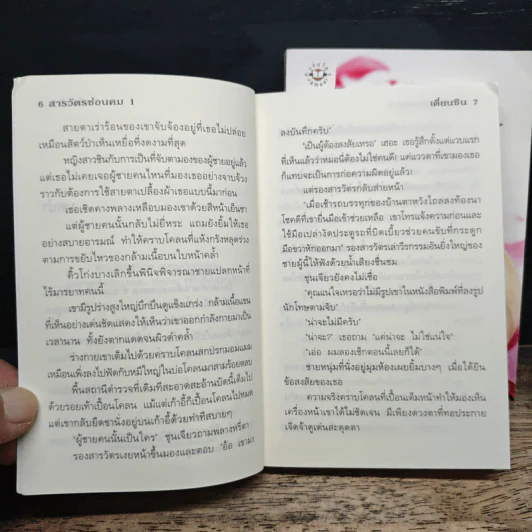 6 สารวัตรซ่อนคม 1
สายตาเร่าร้อนของเขาจับจ้องอยู่ที่เธอไม่ปล่อย
เหมือนสัตว์ป่าเห็นเหยื่อที่งดงามที่สุด
หญิงสาวชินกับการเป็นที่จับตามองของผู้ชายอยู่แล้ว
แต่เธอไม่เคยเจอผู้ชายคนไหนที่มองเธออย่างจาบจ้วง
ราวกับต้องการใช้สายตาเปลื้องผ้าเธอแบบนี้มาก่อน
เธอเชิดคางพลางเหลือบมองเขาด้วยสีหน้าเย็นชา
แต่ผู้ชายคนนั้นกลับไม่ยี่หระ แถมยังยิ้มให้เธอ
อย่างสบายอารมณ์ ทำให้คราบโคลนที่แห้งกรังหลุดร่วง
ตามการขยับไหวของกล้ามเนื้อบนใบหน้า
คิ้วโก่งบางเลิกขึ้นพินิจพิจารณาชายแปลกหน้าที่
ไร้มารยาทคนนี้
เขามีรูปร่างสูงใหญ่บึกบึนดูแข็งแกร่ง กล้ามเนื้อแขน
ที่เห็นอย่างเด่นชัดแสดงให้เห็นว่าเขาออกกำลังกายมาเป็น
เวลานาน ทั้งยังตากแดดจนผิวดำคล้ำ
ร่างกายเขาเต็มไปด้วยคราบโคลนสกปรกมอมแมม
เหมือนเพิ่งลงไปฟัดกับหมีใหญ่ในบ่อโคลนมาสามร้อยตลบ
พื้นสถานีตำรวจที่เดิมทีสะอาดสะอ้านบัดนี้เต็มไป
ด้วยรอยเท้าเปื้อนโคลน แม้แต่เก้าอี้ก็เปื้อนโคลนไปหมด
แต่เขากลับยึดขานั่งอยู่บนเก้าอี้ด้วยท่าทีสบายๆ
"ผู้ชายคนนั้นเป็นใคร" ชุนเจียวถามพลางหรี่ตา
รองสารวัตรเงยหน้าขึ้นมองและตอบ "อ๋อ เขามา
เตี่ยนซิน 7
ลงบันทึกครับ"
"เป็นผู้ต้องสงสัยเหรอ" เฮอะ เธอรู้สึกตั้งแต่แวบแรก
ที่เห็นแล้วว่าหมอนี่ต้องไม่ใช่คนดี! แค่แววตาที่เขามองเธอ
ก็แทบจะเป็นการก่อความผิดอยู่แล้ว!
แต่รองสารวัตรกลับส่ายหน้า
"เมื่อเช้ารถบรรทุกของบ้านตาหวังไถลลงท้องนา
โชคดีที่เขายื่นมือเข้าช่วยเหลือ เขาโทรแจ้งความก่อนและ
ใช้มือเปล่างัดประตูรถที่บิดเบี้ยวช่วยคนขับที่กระดูก
มือขวาหักออกมา" รองสารวัตรเล่าวีรกรรมอันยิ่งใหญ่ของ
ชายผู้นี้ให้ฟังด้วยน้ำเสียงชื่นชม
ชุนเจียวยังคงไม่เชื่อ
"คุณแน่ใจเหรอว่าไม่มีรูปเขาในหนังสือพิมพ์ที่ลงรูป
นักโทษตามจับ"
"น่าจะไม่มีครับ"
"น่าจะ?" เธอถาม "แค่น่าจะ ไม่ใช่แน่ใจ"
"เอ่อ ผมลองเช็กตอนนี้เลยก็ได้"
ชายหนุ่มที่นั่งอยู่มุมห้องเผยยิ้มบางๆ เมื่อได้ยิน
ข้อสงสัยของเธอ
ความจริงคราบโคลนที่เปื้อนเต็มหน้าทำให้มองเห็น
เครื่องหน้าเขาได้ไม่ชัดเจน มีเพียงดวงตาที่ทอประกาย
เจิดจ้าคู่เด่นสะดุดตา